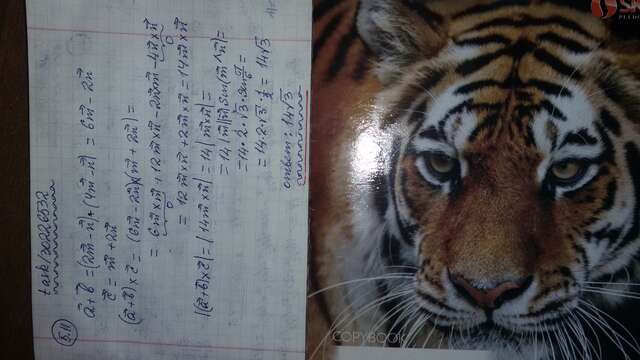 task/30226532
5.11
a⃗+b⃗ = (2m⃗-n⃗)+(4m⃗-n⃗) = 6m⃗-2n⃗
c⃗ = m⃗+2n⃗
(a⃗+b⃗)×c⃗ = (6m⃗-2n⃗)×(m⃗+2n⃗) =
= 6m⃗×m⃗+12m⃗×n⃗-2n⃗×m⃗-4n⃗×n⃗
0 0
= 12m⃗×n⃗+2m⃗×n⃗=14m⃗×n⃗
|(a⃗+b⃗)×c⃗| = |14m⃗×n⃗| = 14|m⃗×n⃗| =
= 14|m⃗||n⃗|sin(m⃗^n⃗)=
=14·2·√3·sin π/6 =
= 14·2·√3·1/2 = 14√3
ответ: 14√3
COPYBOOK